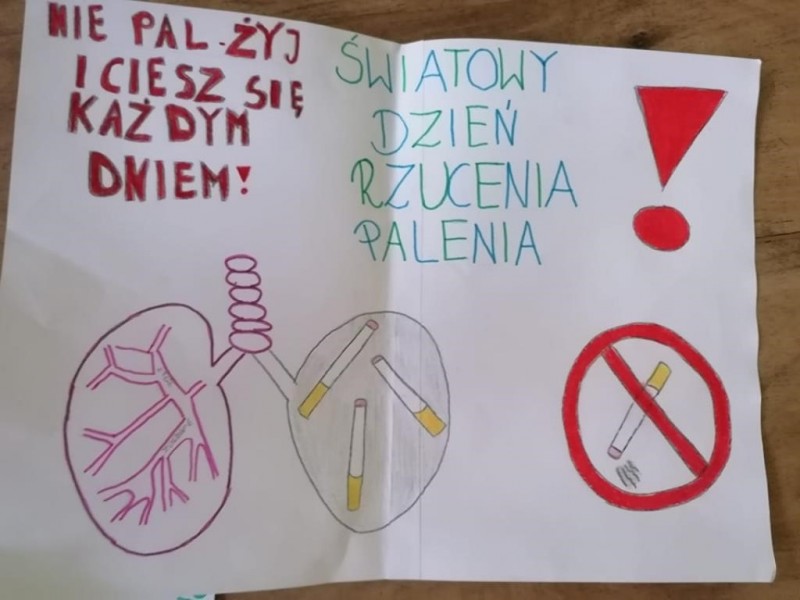 NIE PAL-ŻYJ
I CIESZ SIĘ
KAŻDYM
DNIEM!
ŚWIATOWY
DZIEŃ
RZUCENIA
PALENIA